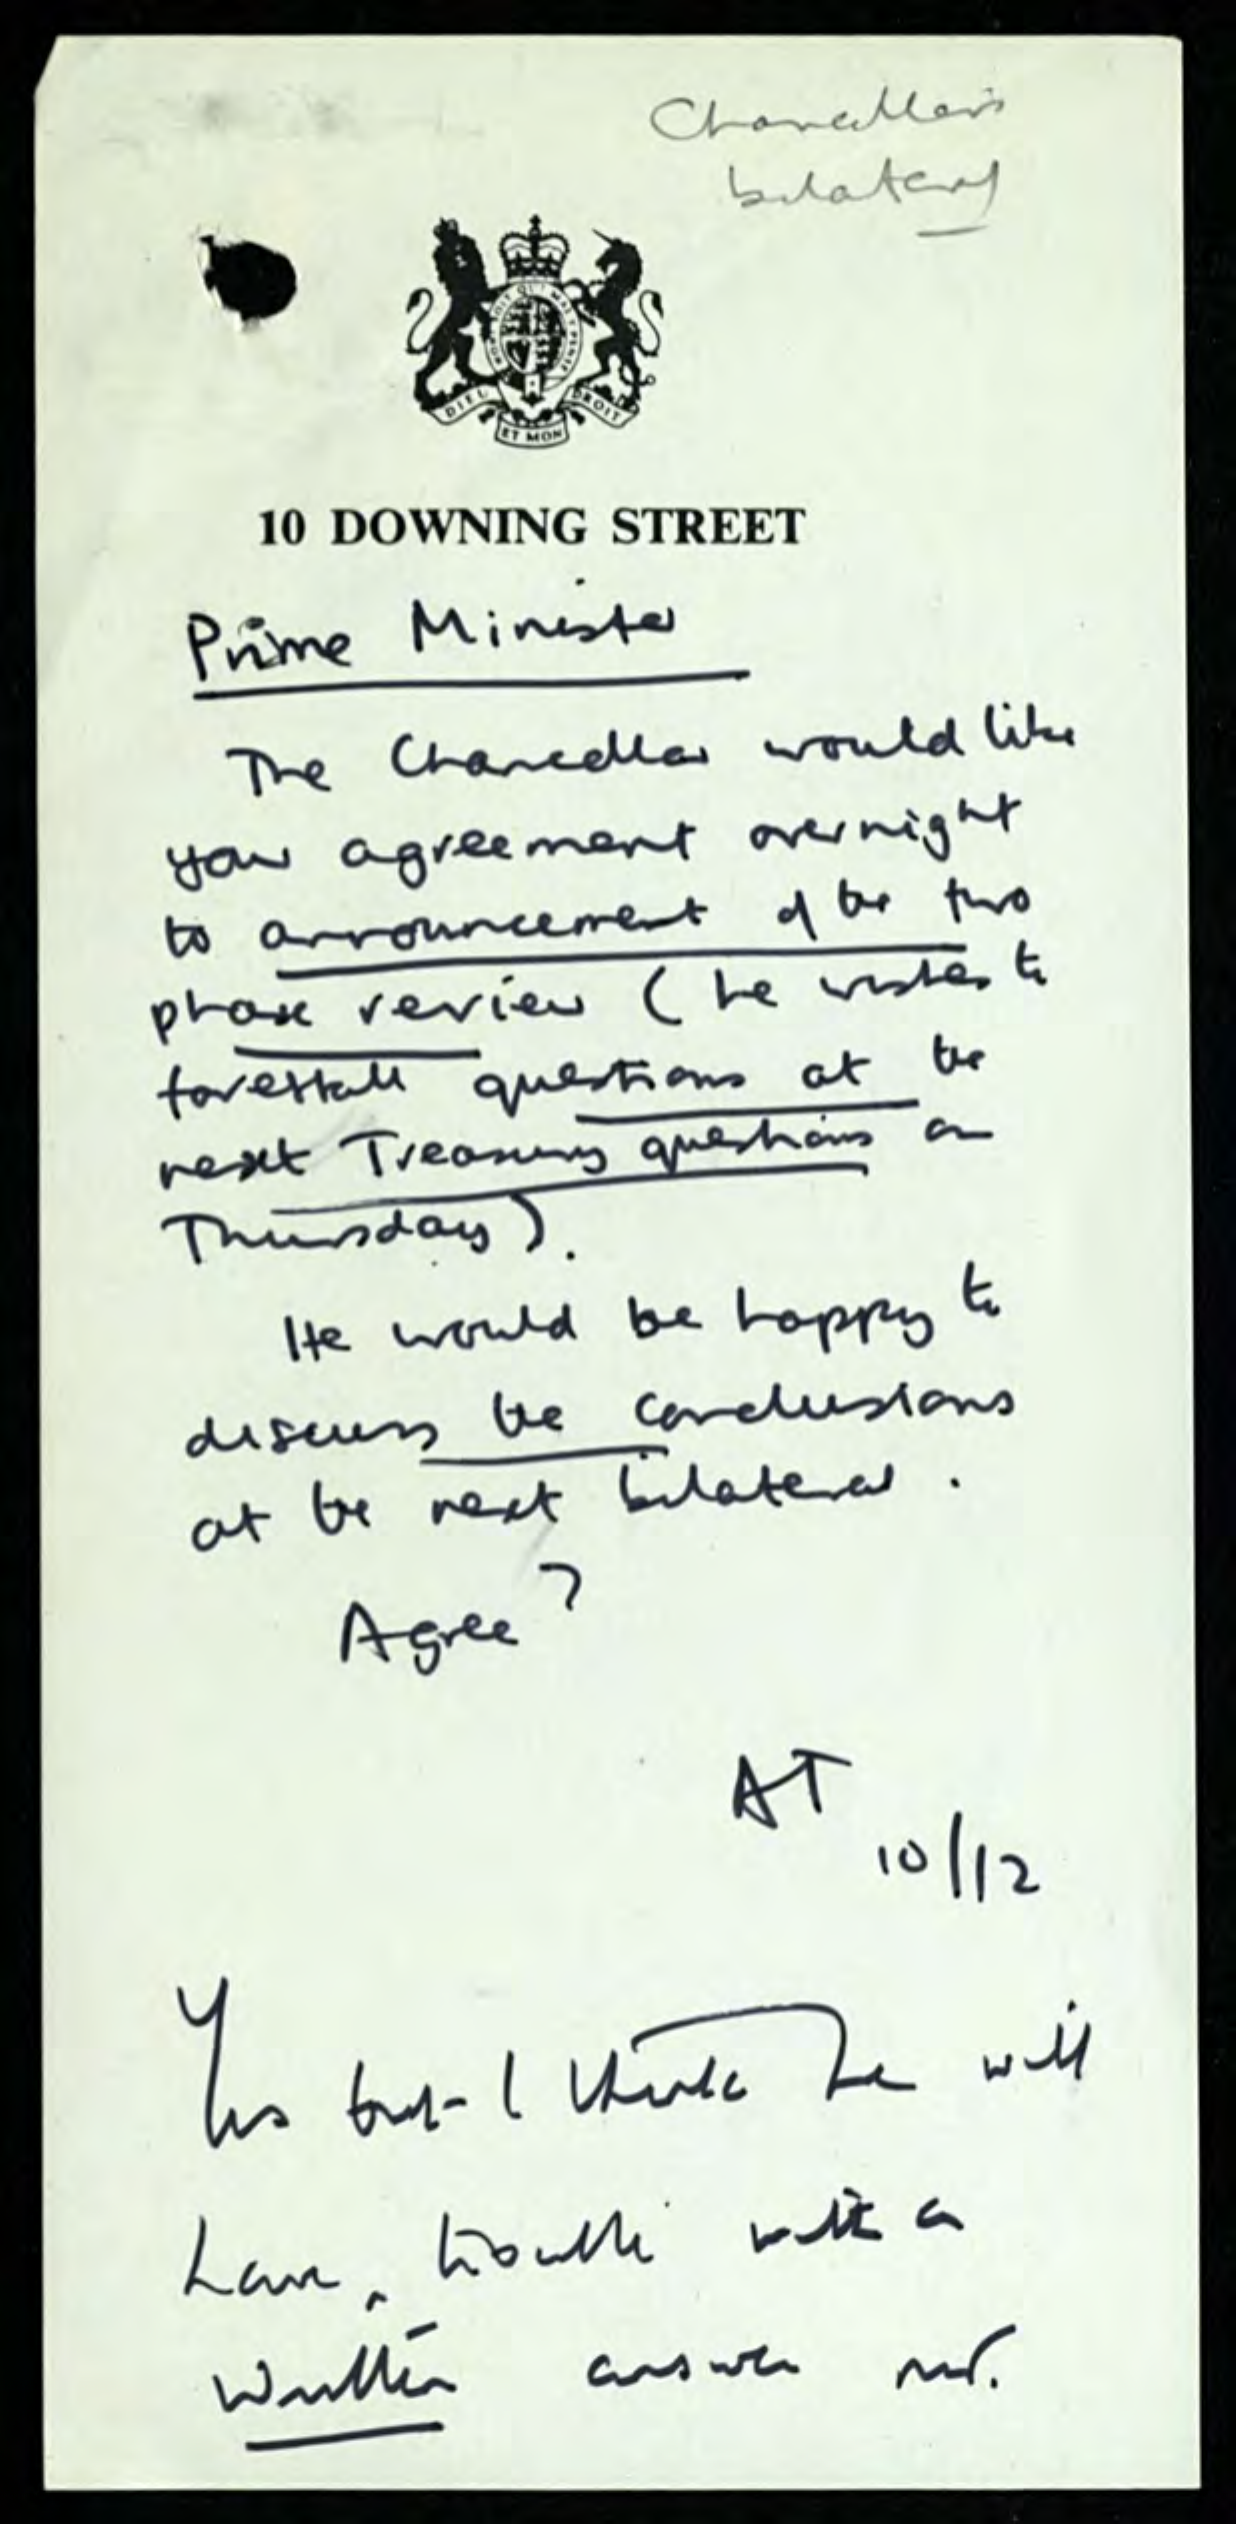 Chancellor's
bilateral
DIEU ET MON DROIT
10 DOWNING STREET
Prime Minister
The Chancellor would like
your agreement overnight
to announcement of the two
phase review (he wishes to
forestall questions at the
next Treasury questions on
Thursday).
He would be happy to
discuss the conclusions
at the next bilateral.
Agree?
AT
10/12
Yes but I think he will
have trouble with a
written answer